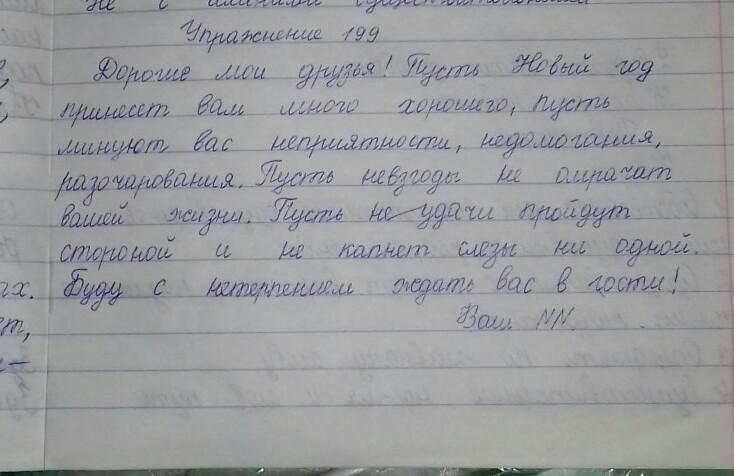 не с именами существительными
Упражнение 199
Дорогие мои друзья! Пусть Новый год
принесет вам много хорошего, пусть
минуют вас неприятности, недомогания,
разочарования. Пусть невзгоды не омрачат
вашей жизни. Пусть неудачи пройдут
стороной и не капнет слезы ни одной.
Буду с нетерпением ждать вас в гости!
Ваш NN.